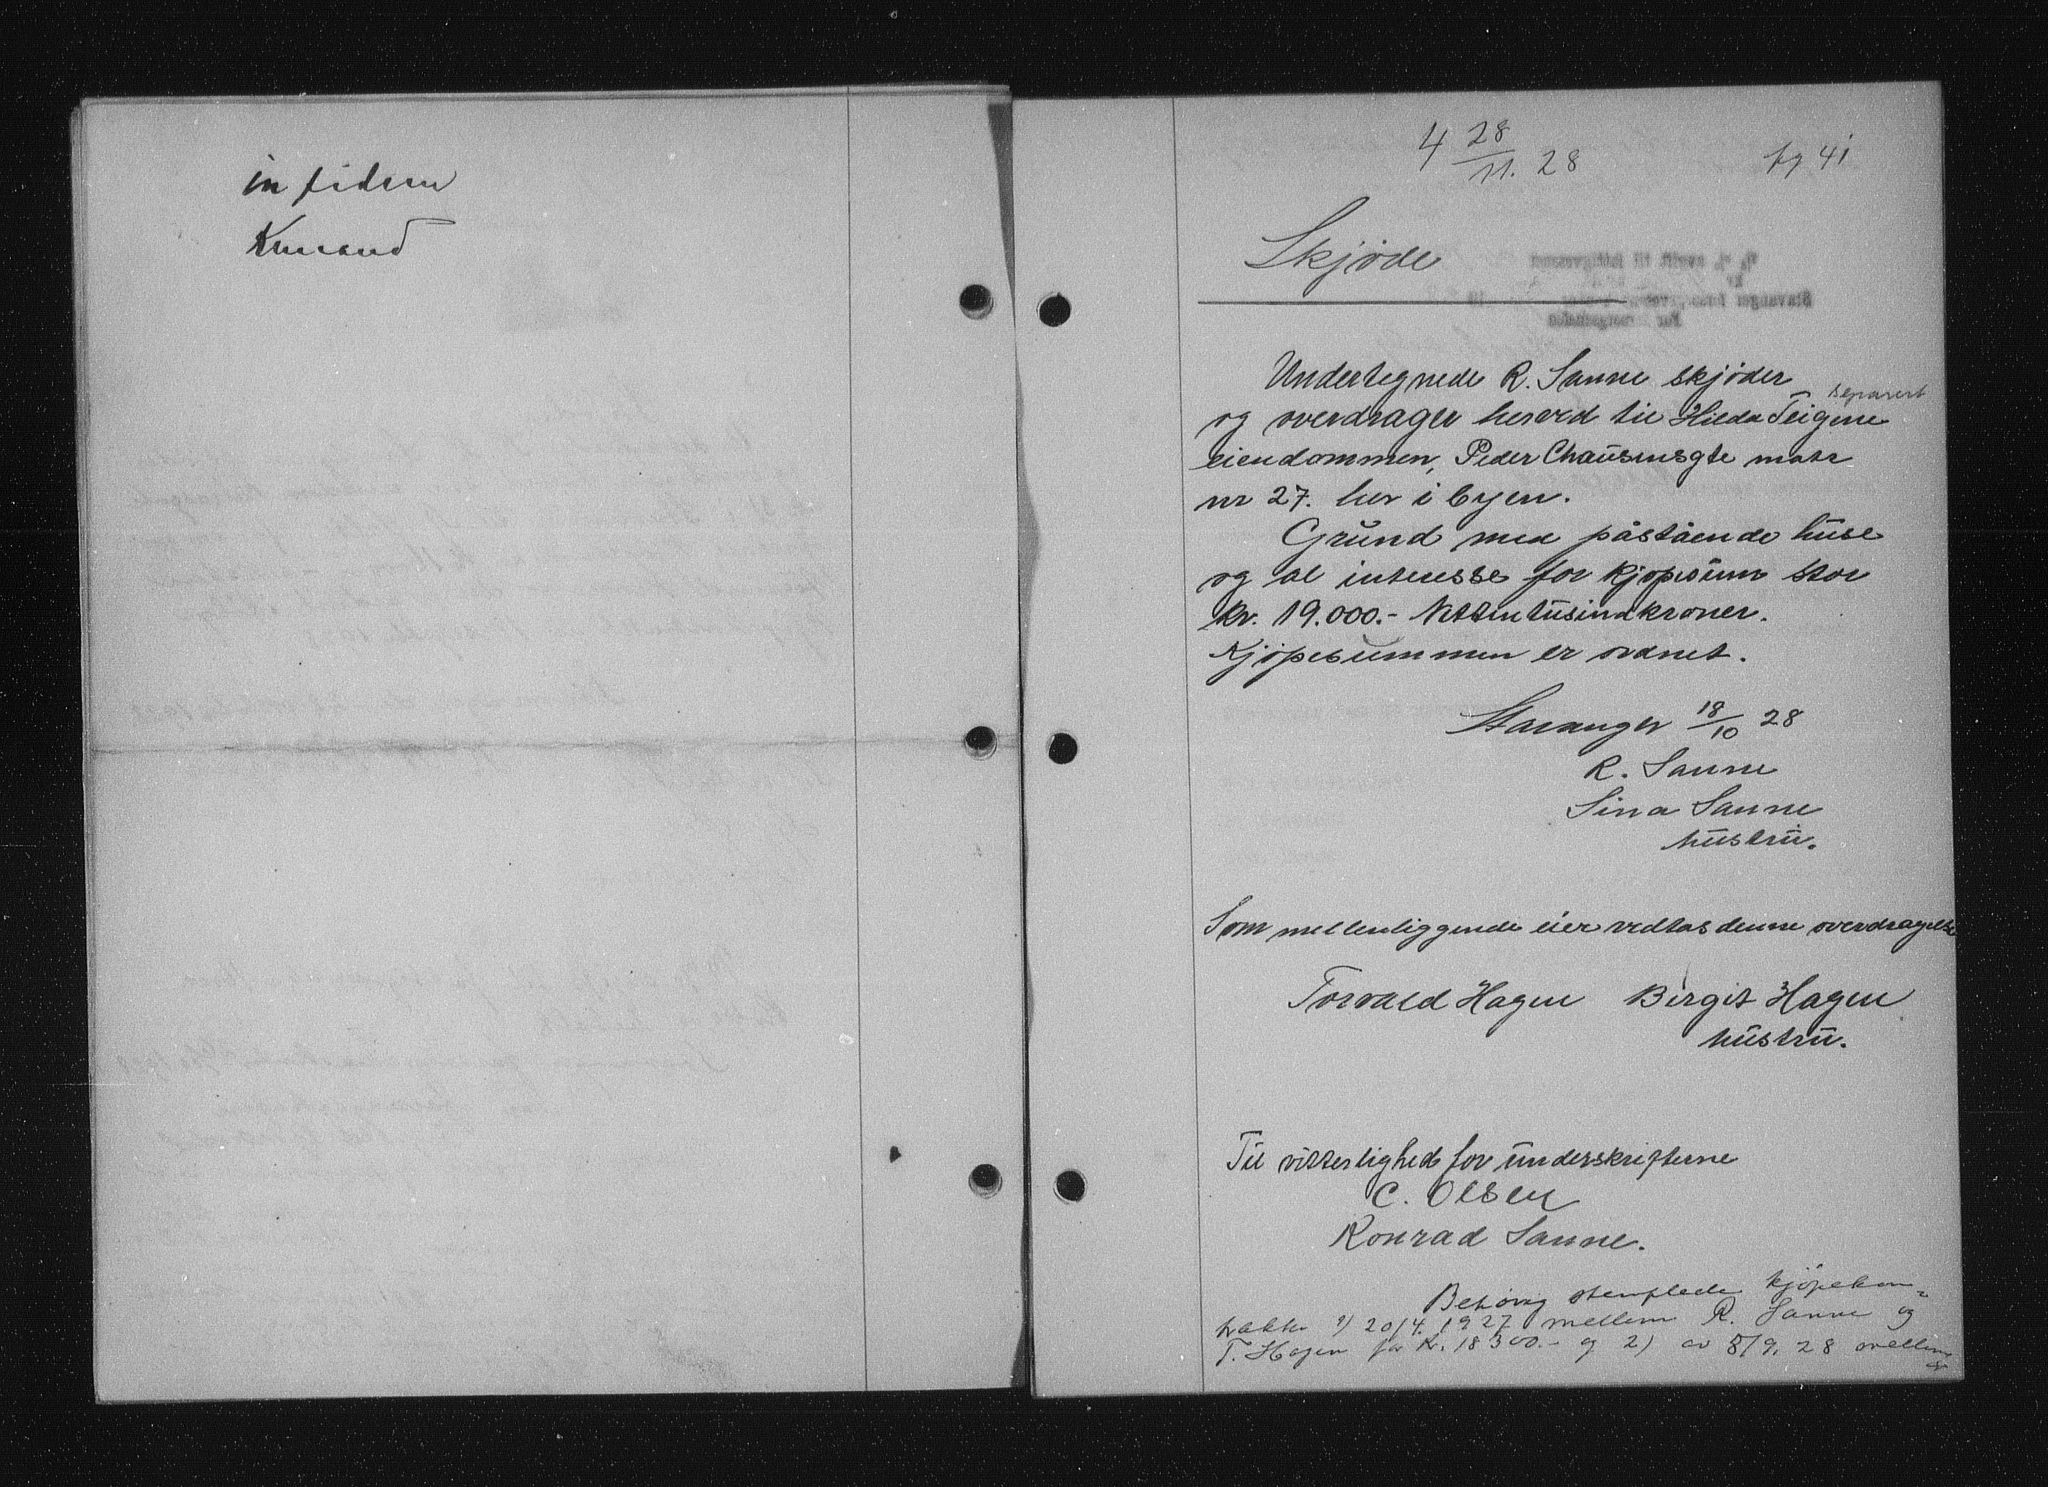 in fidem
4 28/11. 28
fg 41
Skjøde
Undertegnede R. Sanne skjøder
separert
og overdrager herved til Hilda Teigene
eiendommen, Peder Claüsensgte matr
nr 27. her i byen.
Gründ med påstående hüse
og al interesse for kjøpesüm stor
kr. 19.000.- Nittentüsindkroner.
Kjøpesummen er ordnet.
Stavanger 18/10 28
R. Sanne
Sina Sanne
hüstrü.
Som mellenliggende eier vedtas denne overdragelse
Torvald Hagen Birgit Hagen
hüstrü.
Til vitterlighed for ünderskrifterne
C. Olsen
Konrad Sanne.
Behørig stemplede kjøpekon-
trakter 1) 20/4. 1927 mellem R. Sanne og
T. Hagen for Kr. 18300.- og 2) av 8/9. 28 mellem